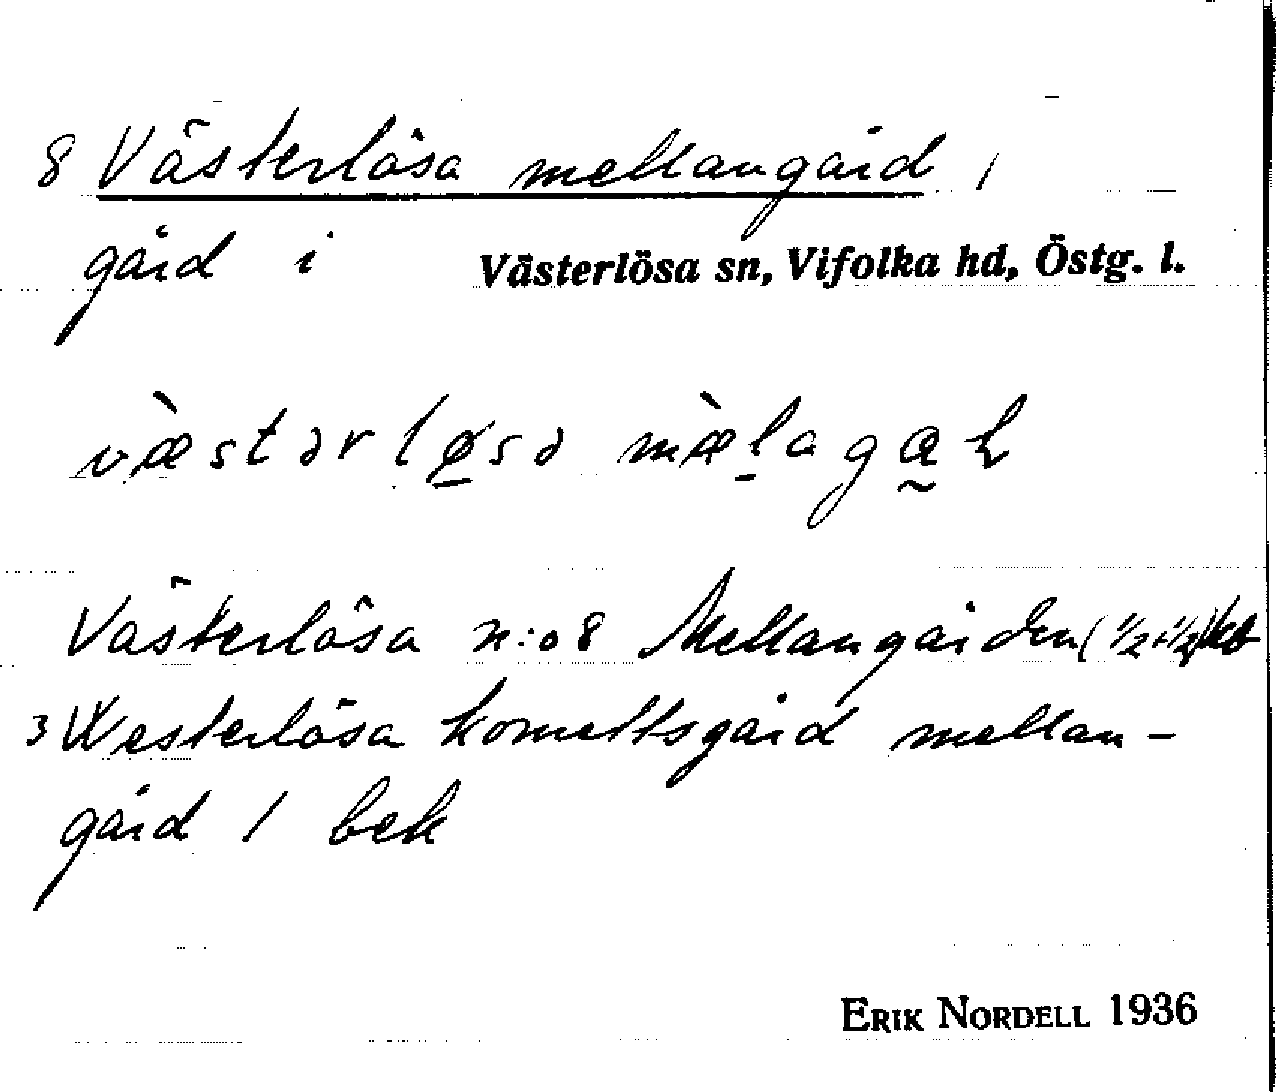 8 Västerlösa mellangård,
gård i Västerlösa sn, Vifolka hd, Östg. l.
væ̀stərlø̱sə mæ̀l̠aga̰ɽ
Västerlösa n:o 8 Mellangården (1/2+1/2)
3 Westerlösa kornettsgård mellan-
gård 1 bek
ERIK NORDELL 1936